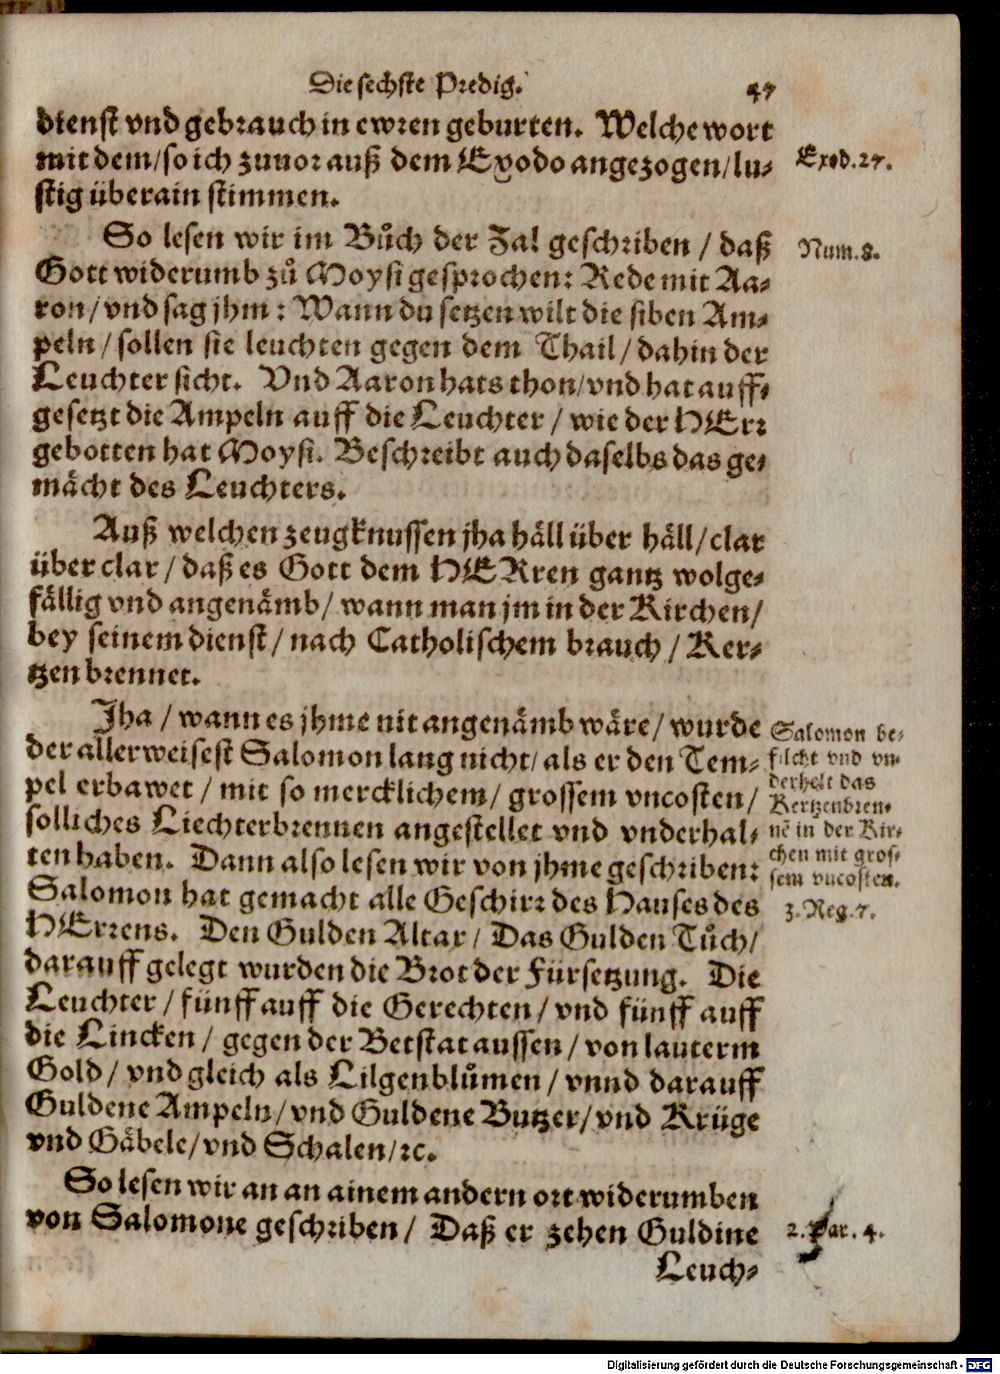 Die sechste Predig. 47
dienst vnd gebrauch in ewren geburten. Welche wort
mit dem/so ich zuuor auß dem Exodo angezogen/lu-
stig überain stimmen.
Exod. 27.
So lesen wir im Bůch der Zal geschriben / daß
Gott widerumb zů Moysi gesprochen: Rede mit Aa-
ron/vnd sag jhm : Wann du setzen wilt die siben Am-
peln/sollen sie leuchten gegen dem Thail/dahin der
Leuchter sicht. Vnd Aaron hats thon/vnd hat auff-
gesetzt die Ampeln auff die Leuchter / wie der HErr
gebotten hat Moysi. Beschreibt auch daselbs das ge-
mächt des Leuchters.
Num. 8.
Auß welchen zeugknussen jha häll über häll/clar
über clar/daß es Gott dem HERren gantz wolge-
fällig vnd angenämb/ wann man jm in der Kirchen/
bey seinem dienst/nach Catholischem brauch/Ker-
tzen brennet.
Jha/wann es jhme nit angenämb wäre/wurde
der allerweisest Salomon lang nicht/als er den Tem-
pel erbawet / mit so mercklichem/ grossem vncosten/
solliches Liechterbrennen angestellet vnd vnderhal-
ten haben. Dann also lesen wir von jhme geschriben:
Salomon hat gemacht alle Geschirr des Hauses des
HErrens. Den Gulden Altar/ Das Gulden Tůch/
darauff gelegt wurden die Brot der Fürsetzung. Die
Leuchter/fünff auff die Gerechten/vnd fünff auff
die Lincken/ gegen der Betstat aussen/von lauterm
Gold/vnd gleich als Lilgenblůmen/vnnd darauff
Guldene Ampeln/vnd Guldene Butzer/vnd Krüge
vnd Gäbele/vnd Schalen/rc.
Salomon be-
filcht vnd vn-
derhelt das
Kertzenbren-
nē in der Kir-
chen mit gros-
sem vncosten.
3. Reg. 7.
So lesen wir an an ainem andern ort widerumben
von Salomone geschriben/ Daß er zehen Guldine
2. Par. 4.
Leuch-
Digitalisierung gefördert durch die Deutsche Forschungsgemeinschaft - DFG